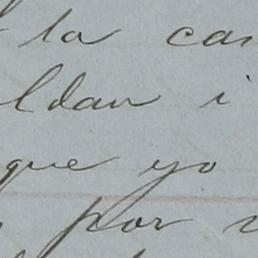 la cas
ldan i
que yo
por